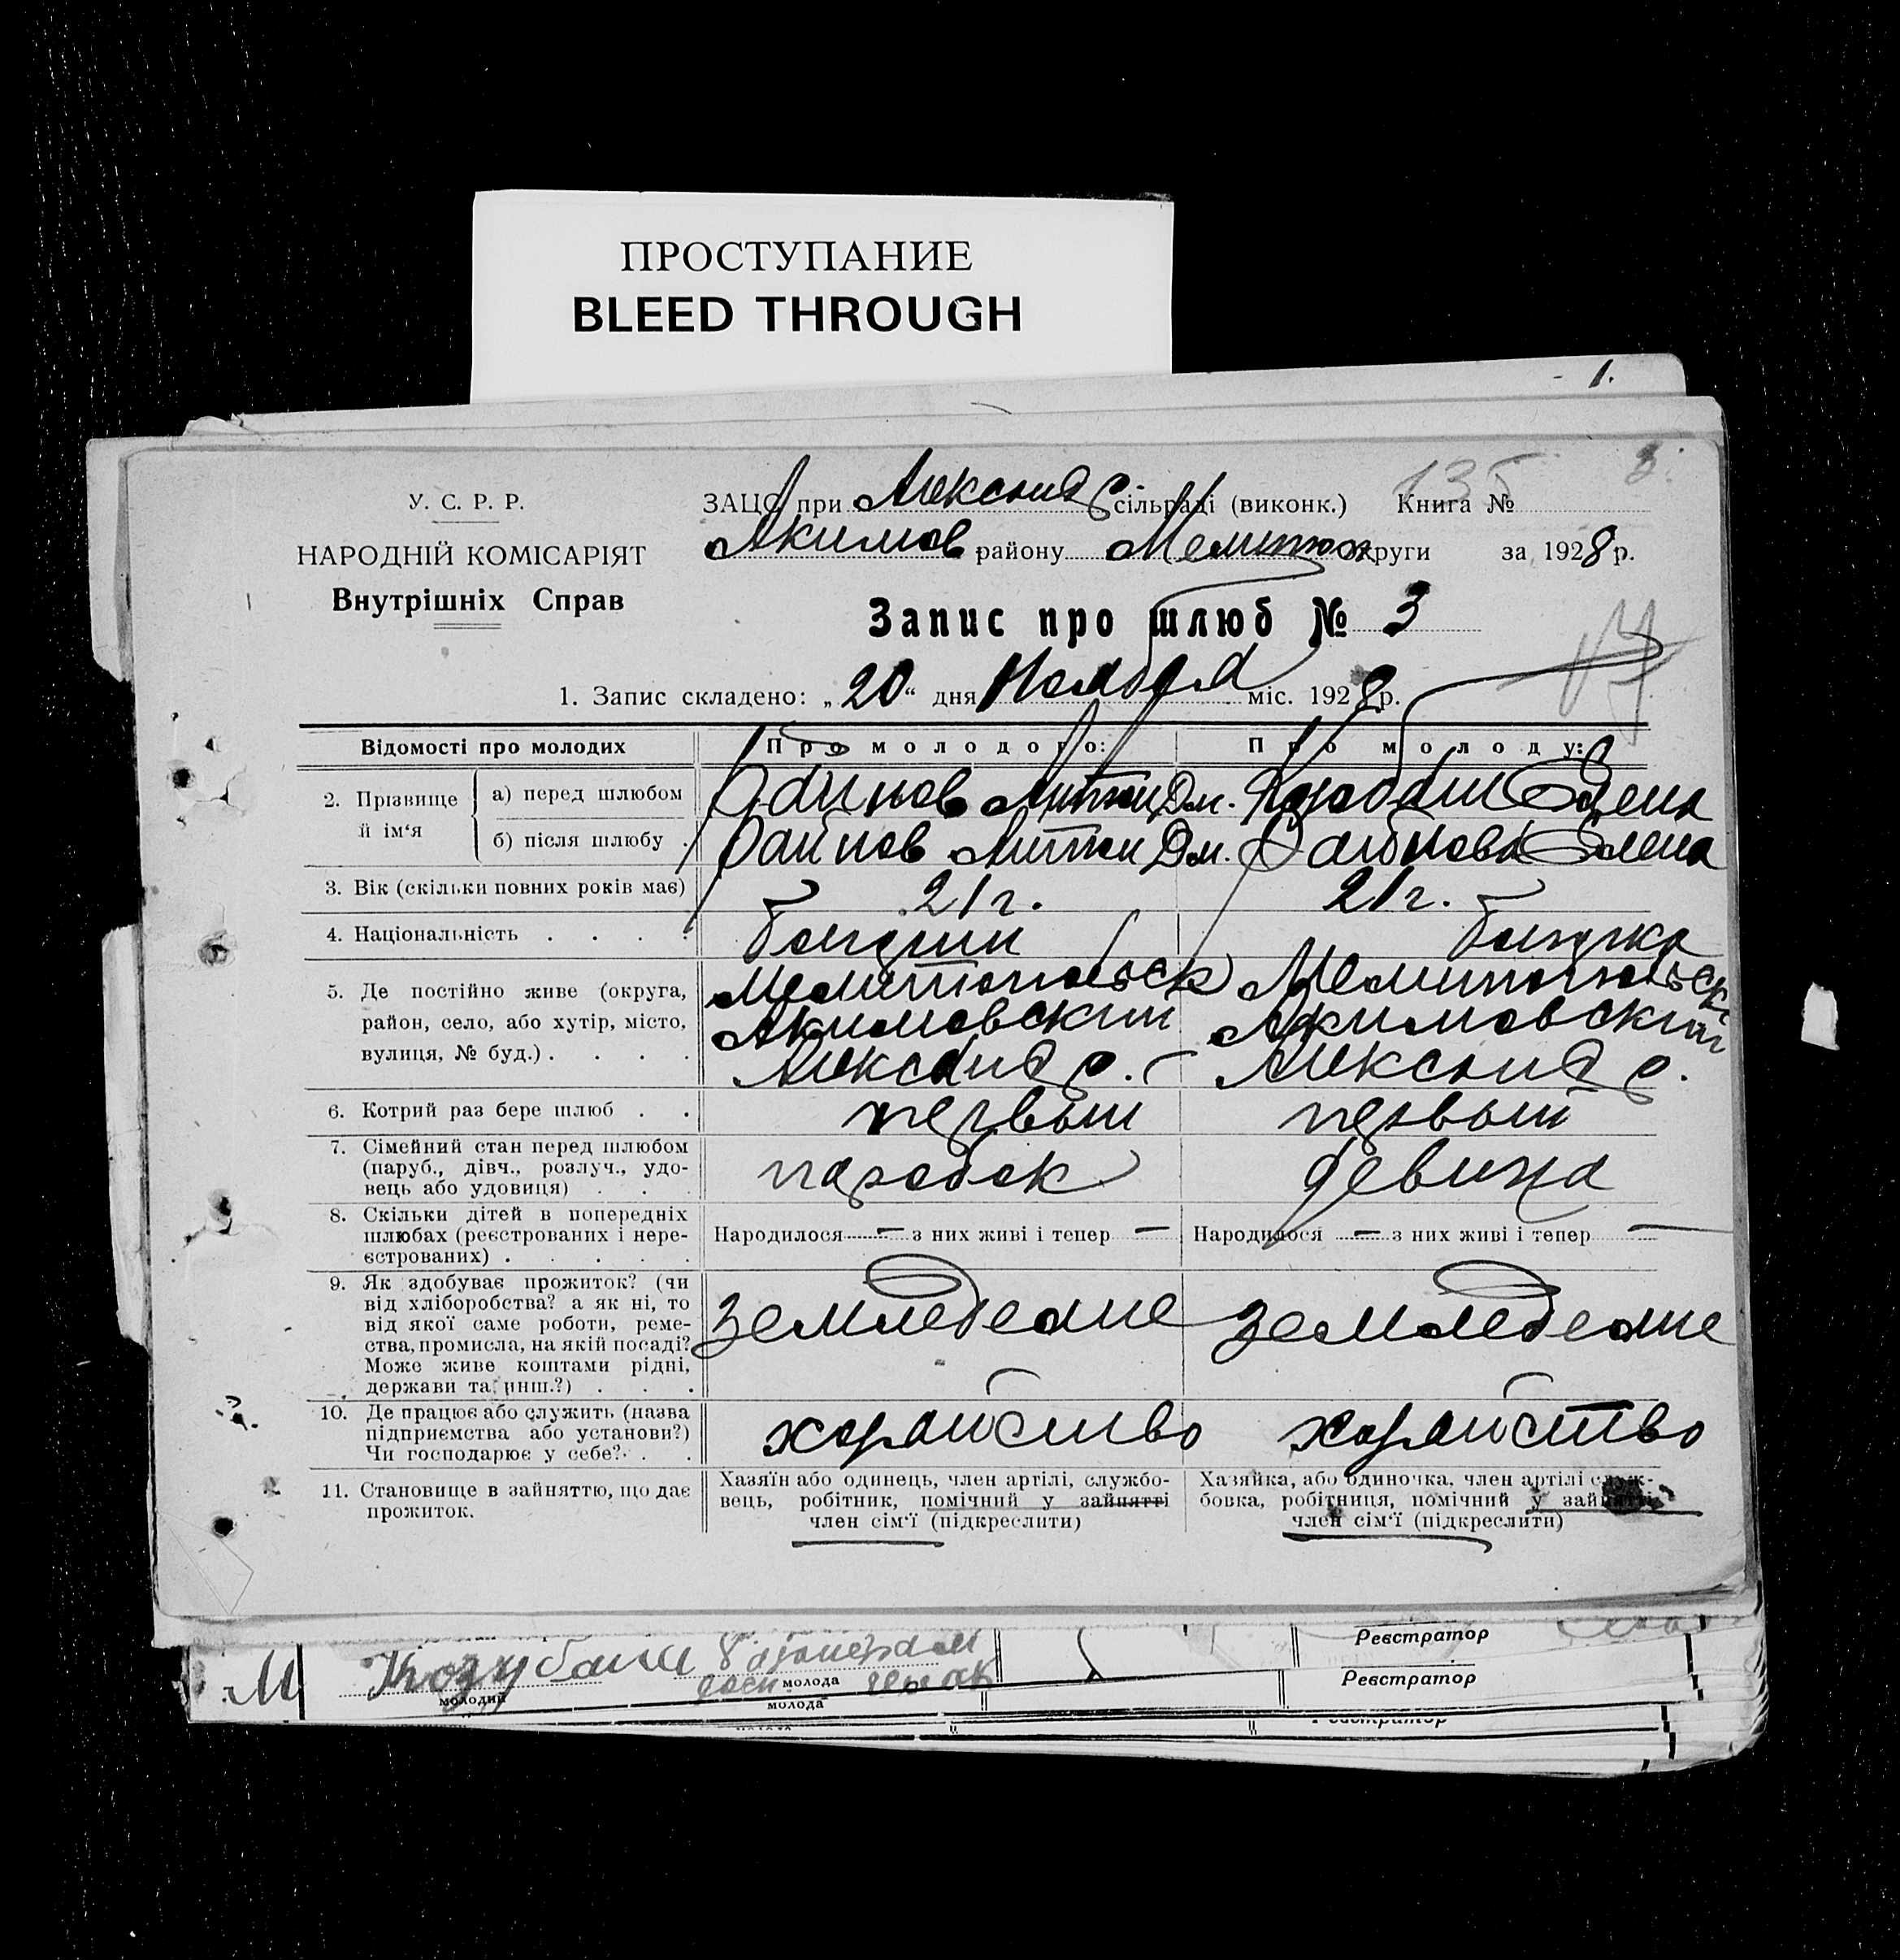 ПРОСТУПАНИЕ
BLEED THROUGH
1.
135
3.
У. С. Р. Р.
НАРОДНІЙ КОМІСАРІЯТ
Внутрішніх Справ
ЗАЦС при Александр сільраді (виконк.) Книга №
Акимов району Мелитоп округи за 1928 р.
Запис про шлюб № 3
1. Запис складено: „20“ дня Ноября міс. 1928 р.
Відомості про молодих
Про молодого:
Про молоду:
2. Прізвище й ім‘я
а) перед шлюбом
Антон Дм.
Елена
б) після шлюбу .
Антон Дм.
Елена
3. Вік (скільки повних років має)
21 г.
21 г.
4. Національність . . . .
болгарин
болгарка
5. Де постійно живе (округа,
район, село, або хутір, місто,
вулиця, № буд.) . . . .
Мелитопольск
Акимовский
Александр.
Мелитопольск
Акимовский
Александр.
6. Котрий раз бере шлюб . .
первый
первый
7. Сімейний стан перед шлюбом
(паруб., дівч., розлуч., удо-
вець або удовиця) . . .
паробок
девица
8. Скільки дітей в попередніх
шлюбах (реєстрованих і нере-
єстрованих) . . . . .
Народилося — з них живі і тепер —
Народилося — з них живі і тепер —
9. Як здобуває прожиток? (чи
від хліборобства? а як ні, то
від якої саме роботи, реме-
ства, промисла, на якій посаді?
Може живе коштами рідні,
держави та инш.?) . . .
земледелие
земледелие
10. Де працює або служить (назва
підприємства або установи?)
Чи господарює у себе? . .
хозяйство
хозяйство
11. Становище в зайняттю, що дає
прожиток.
Хазяїн або одинець, член артілі, службо-
вець, робітник, помічний у зайнятті
член сім‘ї (підкреслити)
Хазяйка, або одиночка, член артілі служ-
бовка, робітниця, помічний у зайнятті
член сім‘ї (підкреслити)
молодий
молода
молода
Реєстратор
Реєстратор